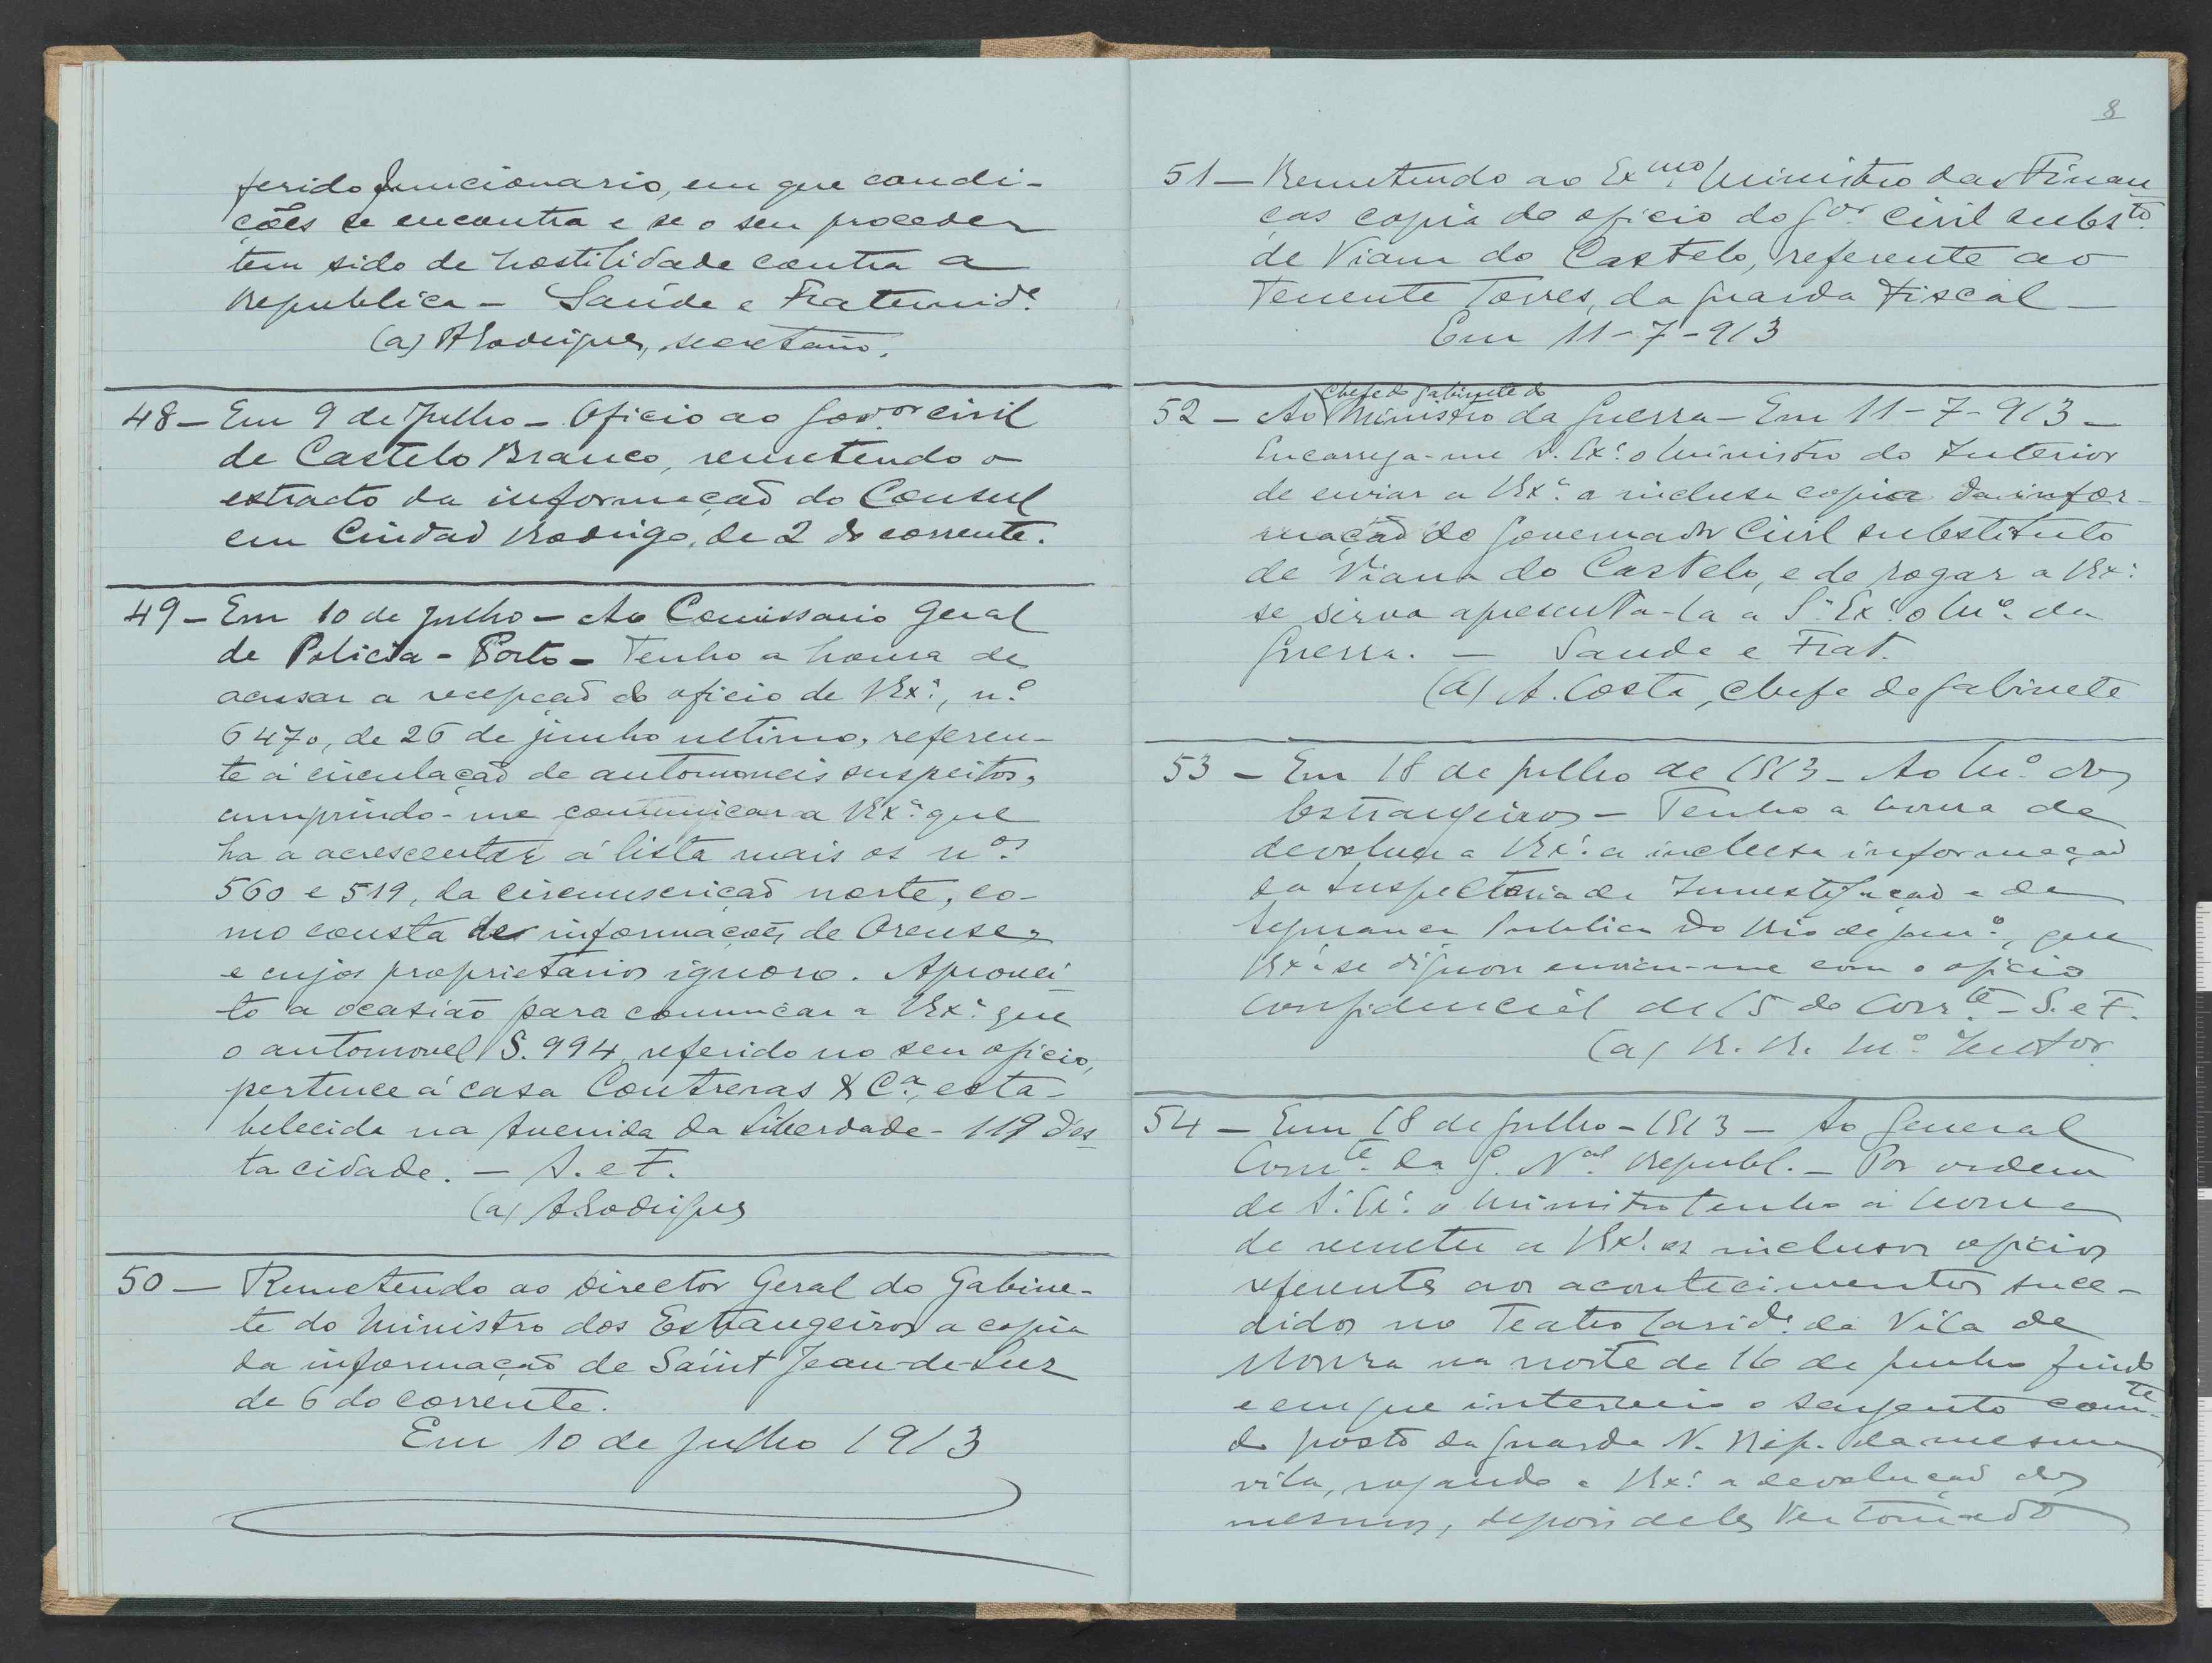 ferido funcionario, em que condi-
ções se encontra e se o seu proceder
tem sido de hostilidade contra a
Republica - Saúde e Fraternid.e
(a) ARodrigues, secretario.
48 - Em 9 de Julho - Oficio ao Gov.or civil
de Castelo Branco, remetendo o
extracto da informação do Consul
em Ciudad Rodrigo, de 2 do corrente.
49 - Em 10 de Julho - Ao Comissario Geral
de Policia - Porto - Tenho a honra de
acusar a recepção do oficio de V.Ex.ª, n.º
6470, de 26 de junho ultimo, referen-
te á circulação de automoveis suspeitos,
cumprindo-me comunicar a V.Ex.ª que
ha a acrescentar á lista mais os n.os
560 e 519, da circunscrição norte, co-
mo consta das informações de Orense,
e cujos proprietarios ignoro. Aprovei-
to a ocasião para comunicar a V.Ex.ª que
o automovel S. 994, referido no seu oficio,
pertence á casa Contreras & C.ª, esta-
belecida na Avenida da Liberdade - 119 des
ta cidade. - S. e F.
(a) ARodrigues
50 - Remetendo ao Director Geral do Gabine-
te do Ministro dos Estrangeiros a copia
da informação de Saint Jean-de-Luz
de 6 do corrente.
Em 10 de Julho 1913
8
51 - Remetendo ao Ex.mo Ministro das Finan
ças copia do oficio do G.or Civil subst.to
de Viana do Castelo, referente ao
Tenente Torres, da Guarda Fiscal -
Em 11-7-913
52 - Ao Chefe do Gabinete do Ministro da Guerra - Em 11-7-913 -
Encarrega-me S. Ex.ª o Ministro do Interior
de enviar a V.Ex.ª a inclusa copia da infor-
mação do Governador Civil substituto
de Viana do Castelo, e de rogar a V.Ex.ª
se sirva apresenta-la a S.ª Ex.ª o M.º da
Guerra. - Saude e Frat.
(a) A. Costa, Chefe do Gabinete
53 - Em 18 de Julho de 1913 - Ao M.º dos
Estrangeiros - Tenho a honra de
devolver a V.Ex.ª a inclusa informação
da Inspectoria de Investigação e de
Segurança Publica do Rio de Jan.º, que
V.Ex.ª se dignou enviar-me com o oficio
confidencial de 15 do corr.te - S. e F.
(a) R. R. M.º Interior
54 - Em 18 de Julho - 1913 - Ao General
Com.te da G. N.al Republ. - Por ordem
de S. Ex.ª o Ministro tenho a honra
de remeter a V.Ex.ª os inclusos oficios
referentes aos acontecimentos suce-
didos no Teatro Carid.e da Vila de
Moura na noite de 16 de Junho findo
e em que interveio o sargento com.te
do posto da Guarda N. Rep. da mesma
vila, rogando a V.Ex.ª a devolução dos
mesmos, depois deles ter tomado